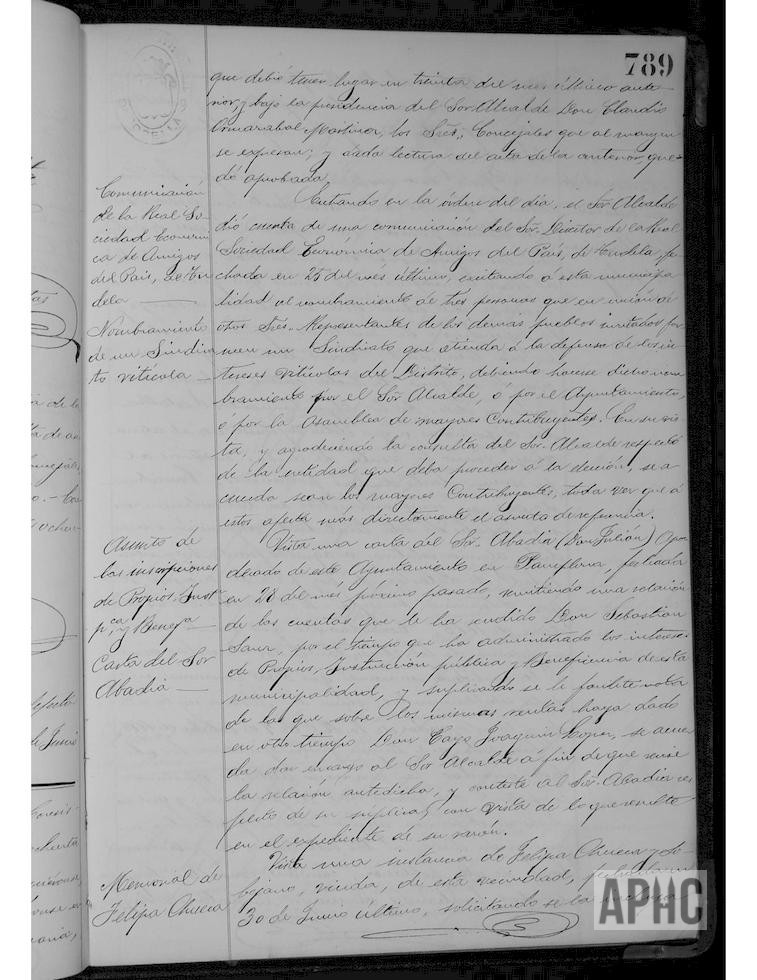 789
que debió tener lugar en treinta del mes último ante-
rior, y bajo la presidencia del Sor. Alcalde Don Claudio
Martinez, los Sres. Concejales que al margen
se expresan; y dada lectura del acta de la anterior, que-
dó aprobada.
Comunicación
de la Real So-
ciedad Económi
ca de Amigos
del País, de Tu
dela
Entrando en la órden del dia, el Sor Alcalde
dió cuenta de una comunicación del Sor. Director de la Real
Sociedad Económica de Amigos del País, de Tudela, fe-
chada en 25 del més último, excitando á esta municipa
lidad al nombramiento de tres personas que en unión de
otros Sres. Representantes de los demás pueblos invitados for
Nombramiento
de un Sindica
to vitícola
men un Sindicato que atienda á la defensa de los in-
tereses vitícolas del Distrito, debiendo hacerse dicho nom
bramiento por el Sor Alcalde, ó por el Ayuntamiento,
ó por la Asamblea de mayores Contribuyentes. En su vis
ta, y agradeciendo la consulta del Sor. Alcalde respecto
de la entidad que deba proceder á la elección, se a-
cuerda sean los mayores Contribuyentes, toda vez que á
estos afecta más directamente el asunto de referencia.
Asunto de
las inscripciones
de Propios, Inst
p.ca y Benef.a
Carta del Sor
Abadia
Vista una carta del Sor. Abadia (Don Julián) Apo
derado de este Ayuntamiento en Pamplona, fechada
en 28 del més próximo pasado, remitiendo una relación
de las cuentas que le ha rendido Don Sebastian
Sanz, por el tiempo que ha administrado los intereses
de Propios, Instrucción pública y Beneficencia de esta
municipalidad, y suplicando se le facilite nota
de la que sobre los mismas rentas haya dado
en otro tiempo Don Cayo Joaquin Lopez, se acuer
da dar encargo al Sor Alcalde á fin de que revise
la relación antedicha, y conteste al Sor. Abadia res
pecto de su súplica, con vista de lo que resulte
en el expediente de su razón.
Memorial de
Felipa Chueca
Vista una instancia de Felipa Chueca y
viuda, de esta vecindad,
30 de Junio último, solicitando se la
APHC